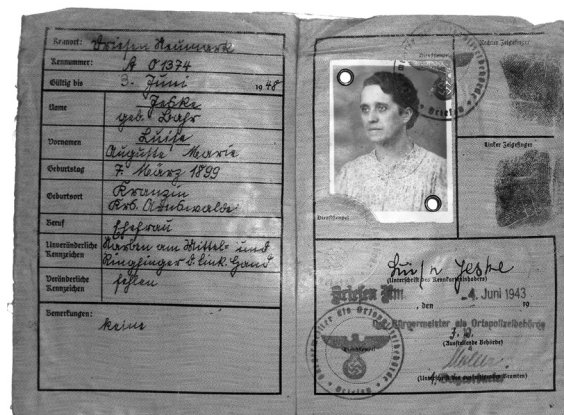 Kennort: Driesen Neumark
Kennummer: A 01374
Gültig bis 3. Juni 1948
Name Jeske
geb. Bahr
Vornamen Luise
Auguste Marie
Geburtstag 7. März 1899
Geburtsort Kranzin
Krs. Arnswalde
Beruf Ehefrau
Unveränderliche Kennzeichen Narben am Mittel- und
Ringfinger d. link. Hand
Veränderliche Kennzeichen fehlen
Bemerkungen: keine
Rechter Zeigefinger
Linker Zeigefinger
Dienststempel
Luise Jeske
(Unterschrift des Kennkarteninhabers)
Driesen Nm., den -4. Juni 1943
Der Bürgermeister als Ortspolizeibehörde
(Ausstellende Behörde)